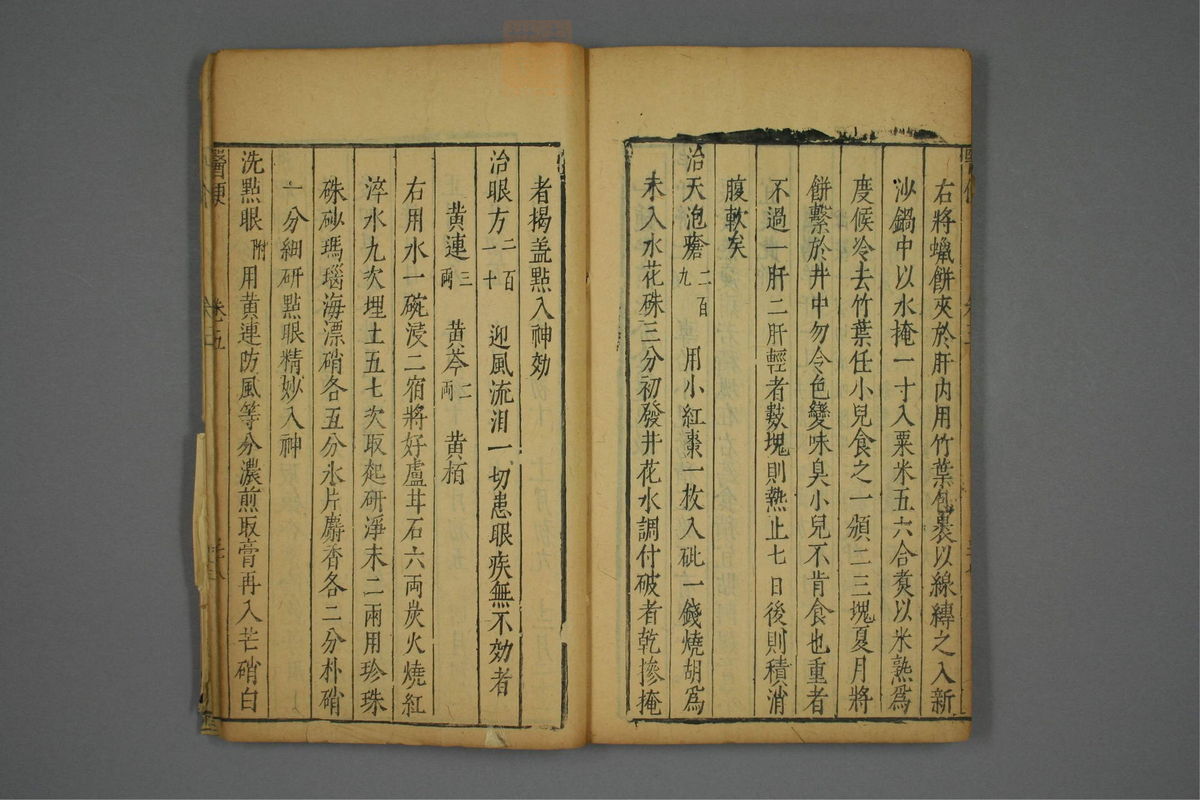 右將蠟餅夾於肝內用竹葉包裹以線縳之入新
沙鍋中以水掩一寸入粟米五六合煑以米熟爲
度候冷去竹葉任小兒食之一頻二三塊夏月將
餅繫於井中勿令色變味臭小兒不肯食也重者
不過一肝二肝輕者數塊則熱止七日後則積消
腹軟矣
治天泡瘡二百九 用小紅棗一枚入砒一錢燒胡爲
末入水花硃三分初發井花水調付破者乾摻掩
者揭盖點入神効
治眼方二百一十 迎風流泪一切患眼疾無不効者
黄連三兩 黄芩二兩 黄栢
右用水一碗浸二宿將好盧甘石六両炭火燒紅
淬水九次埋土五七次取起研淨末二兩用珍珠
硃砂瑪瑙海漂硝各五分氷片麝香各二分朴硝
一分細研點眼精妙入神
洗點眼附 用黄連防風等分濃煎取膏再入芒硝白
醫便
卷五